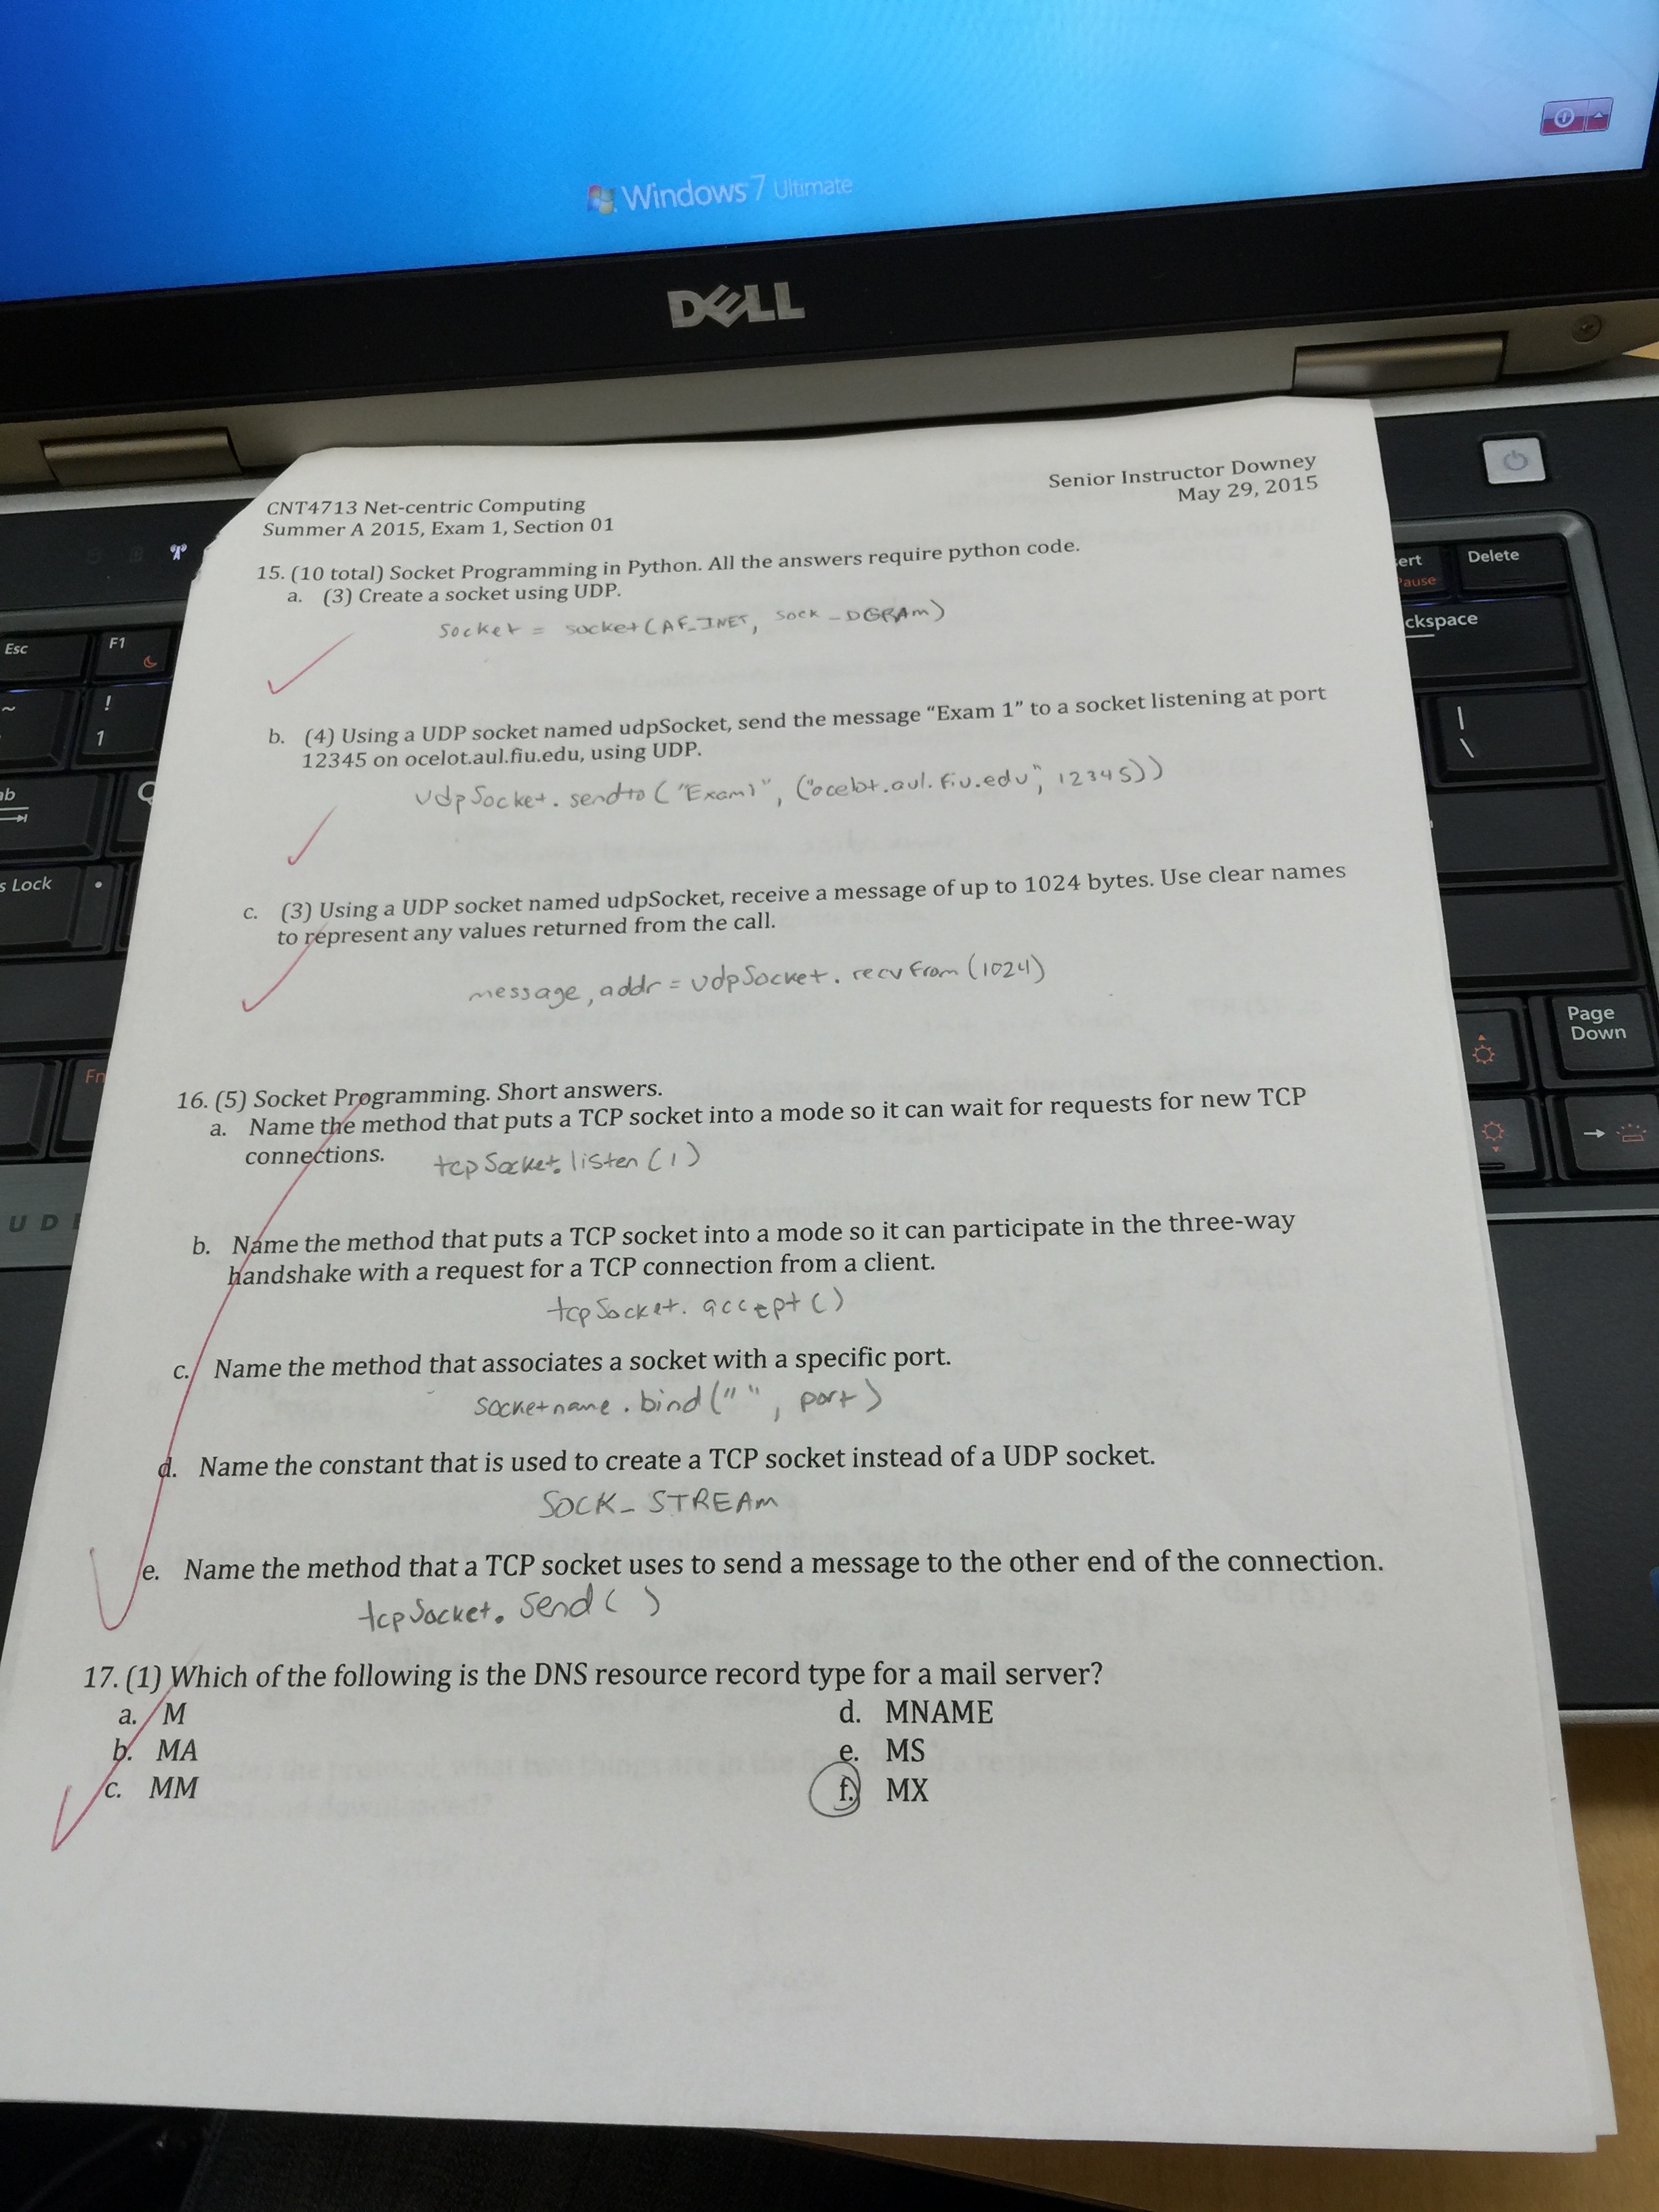 Windows 7 Ultimate
DELL
Senior Instructor Downey
May 29, 2015
CNT4713 Net-centric Computing
Summer A 2015, Exam 1, Section 01
15. (10 total) Socket Programming in Python. All the answers require python code.
a. (3) Create a socket using UDP.
Socket = socket(AF_INET, SOCK_DGRAM)
b. (4) Using a UDP socket named udpSocket, send the message “Exam 1” to a socket listening at port
12345 on ocelot.aul.fiu.edu, using UDP.
udpSocket.sendto("Exam1", ("ocelot.aul.fiu.edu", 12345))
c. (3) Using a UDP socket named udpSocket, receive a message of up to 1024 bytes. Use clear names
to represent any values returned from the call.
message, addr = udpSocket.recvfrom(1024)
16. (5) Socket Programming. Short answers.
a. Name the method that puts a TCP socket into a mode so it can wait for requests for new TCP
connections. tcpSocket.listen(1)
b. Name the method that puts a TCP socket into a mode so it can participate in the three-way
handshake with a request for a TCP connection from a client.
tcpSocket.accept()
c. Name the method that associates a socket with a specific port.
Socketname.bind("", port)
d. Name the constant that is used to create a TCP socket instead of a UDP socket.
SOCK_STREAM
e. Name the method that a TCP socket uses to send a message to the other end of the connection.
tcpSocket.Send()
17. (1) Which of the following is the DNS resource record type for a mail server?
a. M
b. MA
c. MM
d. MNAME
e. MS
f. MX
Esc
F1
!
1
~
Fn
Delete
ckspace
|
\
Page
Down
s Lock
ert
Pause
ab